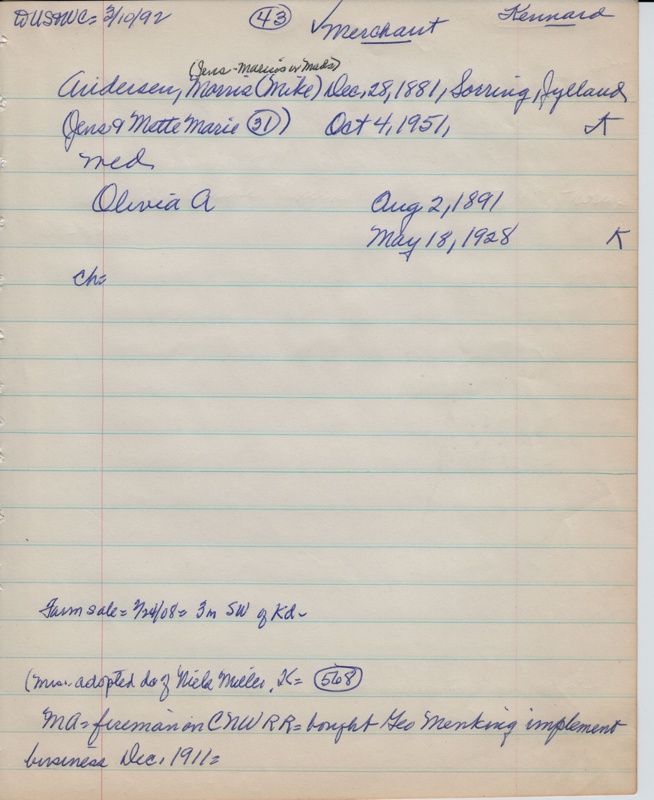 DUSMC= 3/10/92 43 ✓Merchant Kennard
(Jens-Marius or Mads)
Andersen, Morris (Mike) Dec, 28, 1881, Sorring, Jylland
(Jens & Mette Marie 31) Oct 4, 1951, K
med
Olivia A Aug 2, 1891
May 18, 1928 K
Ch=
Farm sale= 2/24/08= 3m SW of Kd-
(Mrs. adopted da of Niels Miller, K= 568)
MA= fireman on CNW RR= bought Geo Menking implement
business Dec. 1911=